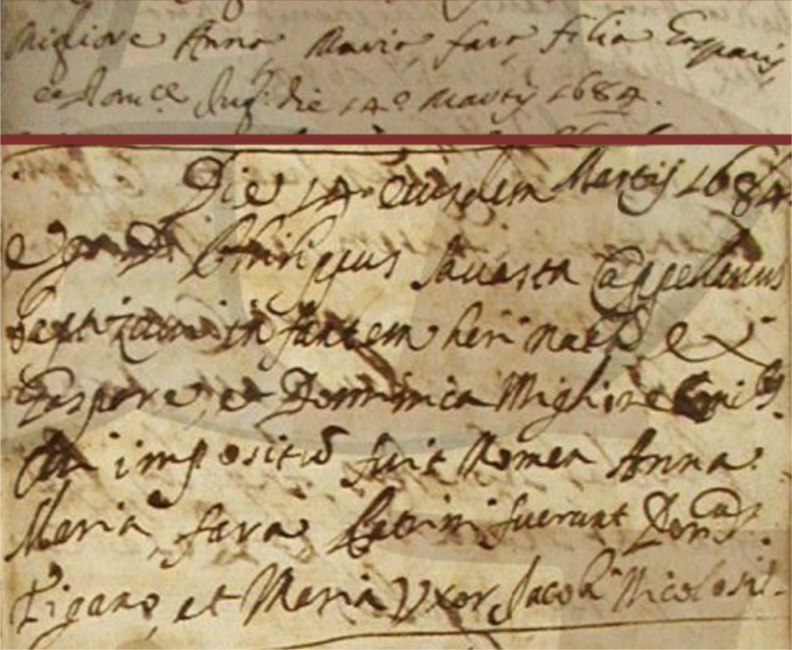 Migliore Anna Maria fara filia Gasparis
et Dom.ce Jug: die 14º Martij 1684.
Die 14 eiusdem Martij 1684.
Ego D. Philippus Cappellanus
baptizavi infantem heri natā ex
Gaspare, et Dominica Migliore
cui impositū fuit Nomen Anna
Maria fara Patrini fuerunt
Pigano, et Maria Uxor Jacobi Nicolosi.